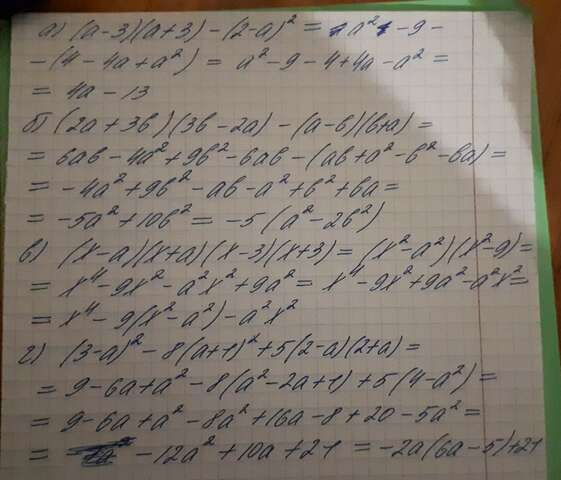 а) (a-3)(a+3) - (2-a)² = a² - 9 -
- (4 - 4a + a²) = a² - 9 - 4 + 4a - a² =
= 4a - 13
б) (2a + 3b)(3b - 2a) - (a-b)(b+a) =
= 6ab - 4a² + 9b² - 6ab - (ab + a² - b² - ba) =
= -4a² + 9b² - ab - a² + b² + ba =
= -5a² + 10b² = -5(a² - 2b²)
в) (x-a)(x+a)(x-3)(x+3) = (x² - a²)(x² - 9) =
= x⁴ - 9x² - a²x² + 9a² = x⁴ - 9x² + 9a² - a²x² =
= x⁴ - 9(x² - a²) - a²x²
г) (3-a)² - 8(a+1)² + 5(2-a)(2+a) =
= 9 - 6a + a² - 8(a² - 2a + 1) + 5(4 - a²) =
= 9 - 6a + a² - 8a² + 16a - 8 + 20 - 5a² =
= -12a² + 10a + 21 = -2a(6a - 5) + 21